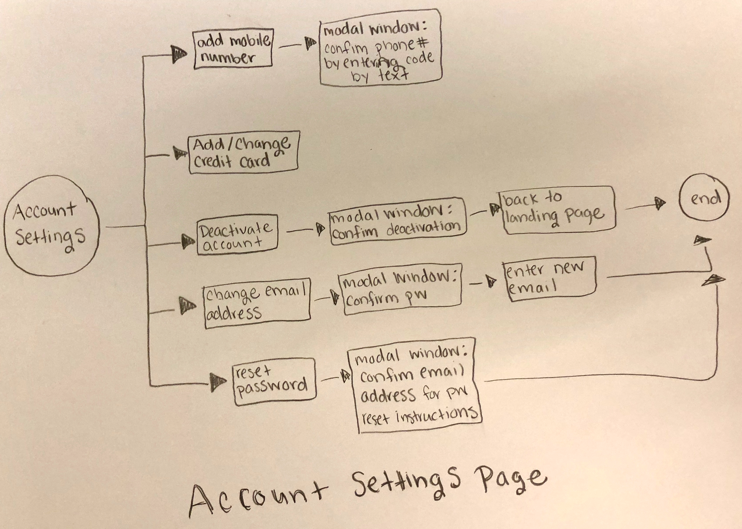 add mobile
number
modal window:
confim phone#
by entering code
by text
Add/Change
credit card
Account
Settings
Deactivate
account
modal window:
confim deactivation
back to
landing page
end
change email
address
modal window:
confirm pw
enter new
email
reset
password
modal window:
confim email
address for pw
reset instructions
Account Settings Page